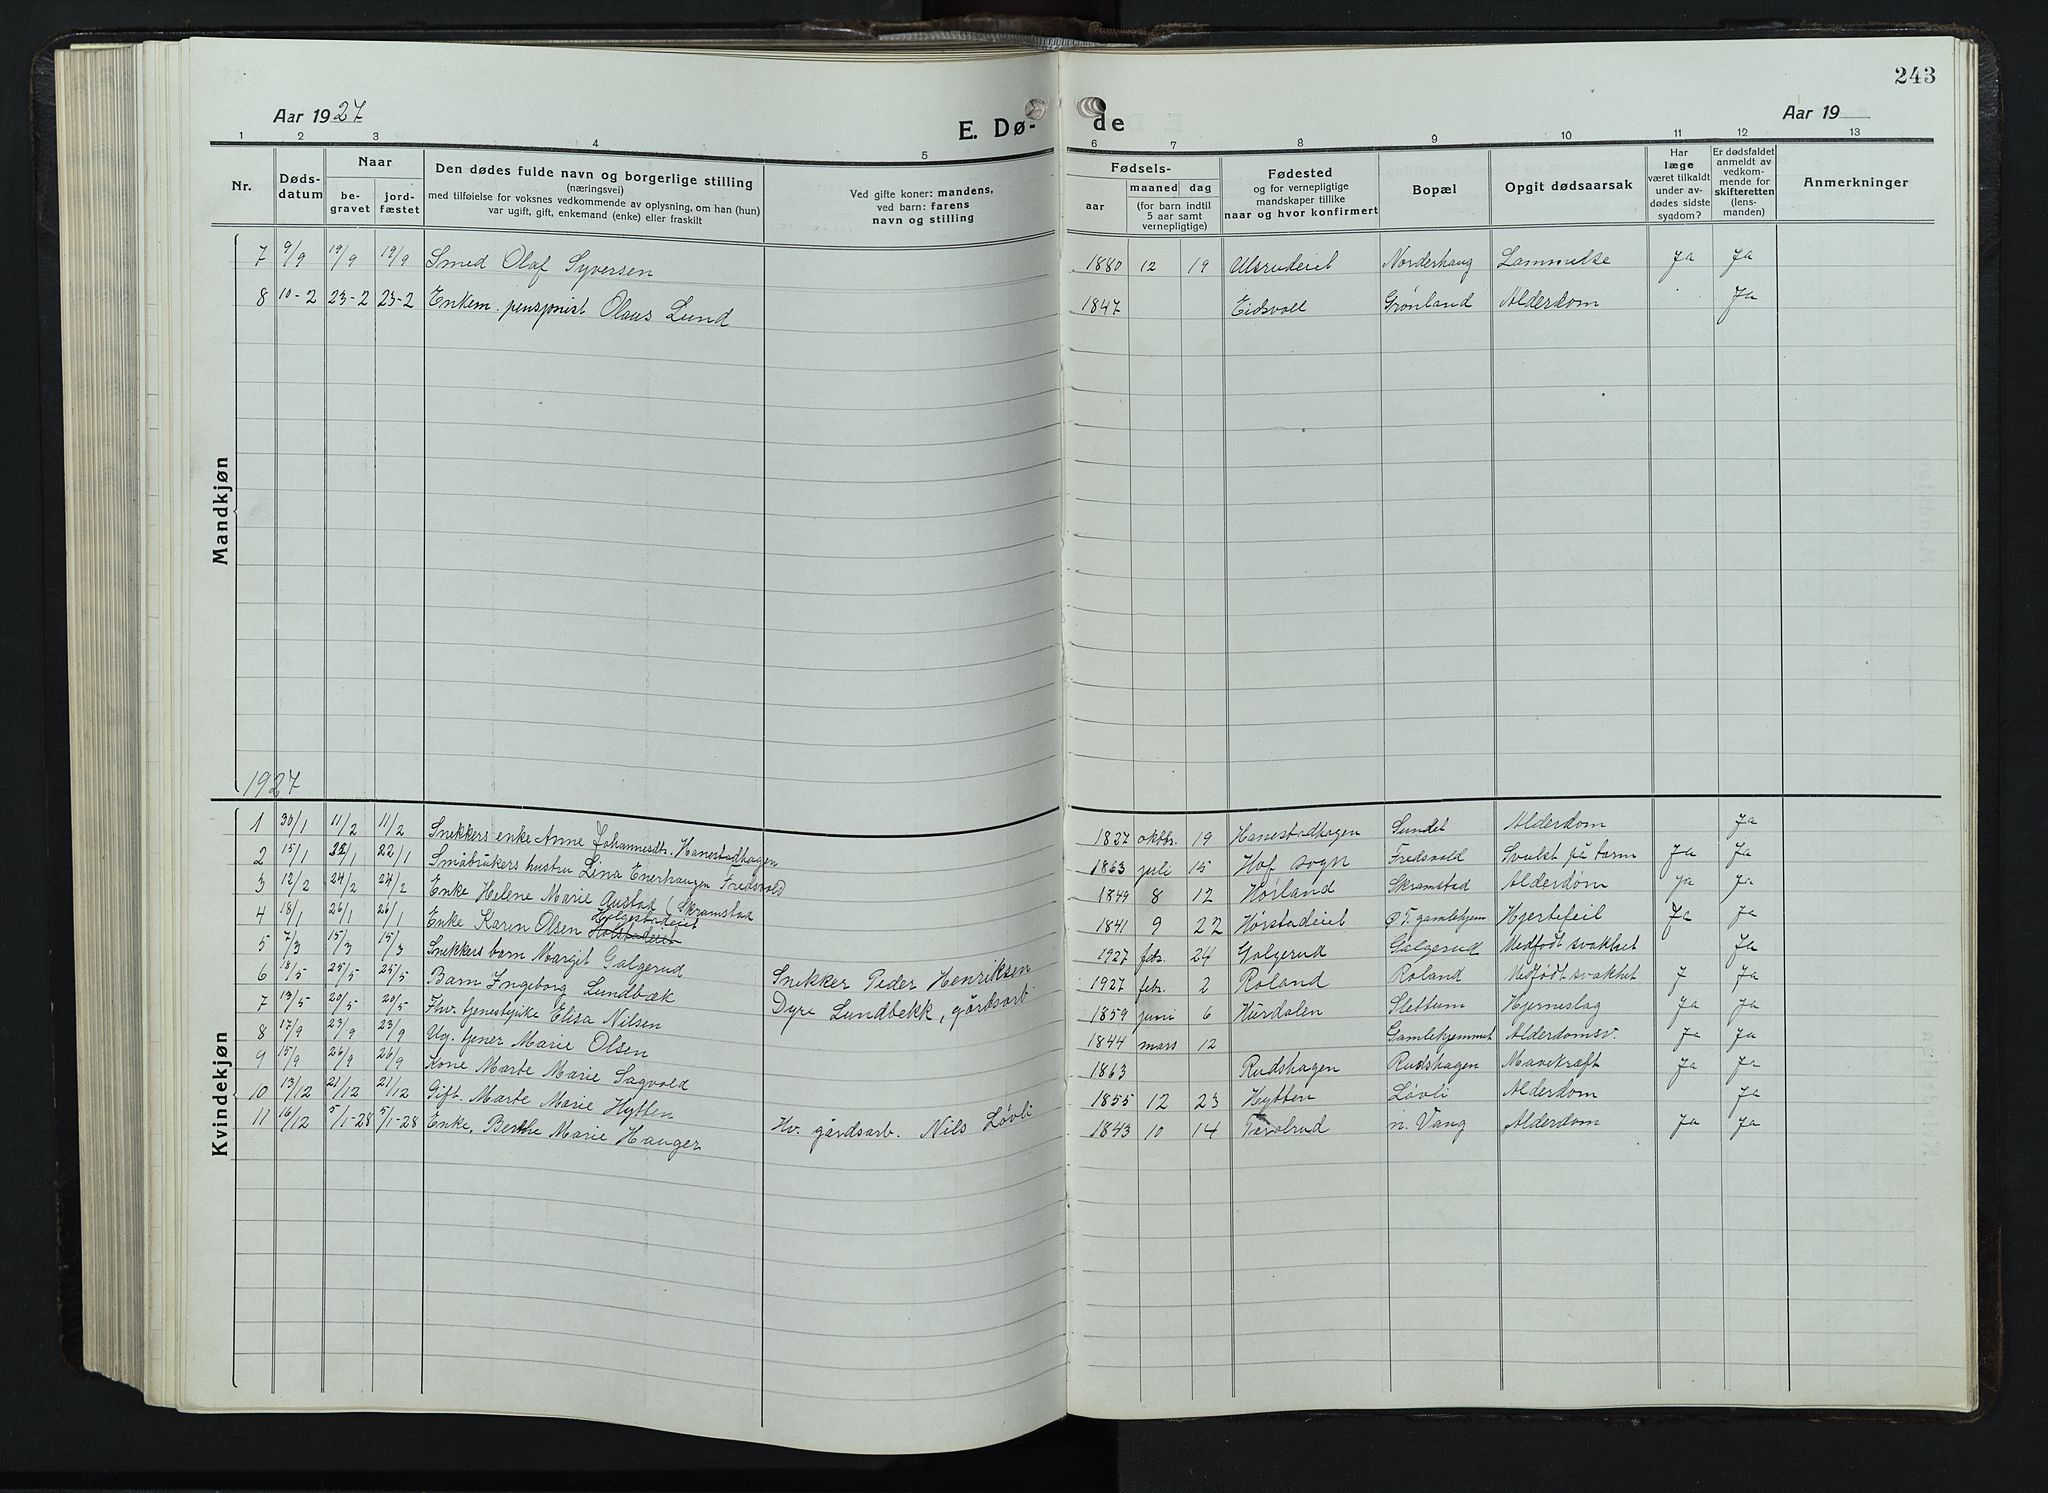 243
Aar 1927
E. Dø-
de
Aar 19
1 2 3 4 5 6 7 8 9 10 11 12 13
Nr.
Døds-
datum
Naar
be-
gravet
jord-
fæstet
Den dødes fulde navn og borgerlige stilling
(næringsvei)
med tilføielse for voksnes vedkommende av oplysning, om han (hun)
var ugift, gift, enkemand (enke) eller fraskilt
Ved gifte koner: mandens,
ved barn: farens
navn og stilling
Fødsels-
aar
maaned
dag
(for barn indtil
5 aar samt
vernepligtige)
Fødested
og for vernepligtige
mandskaper tillike
naar og hvor konfirmert
Bopæl
Opgit dødsaarsak
Har
læge
været tilkaldt
under av-
dødes sidste
sygdom?
Er dødsfaldet
anmeldt av
vedkom-
mende for
skifteretten
(lens-
manden)
Anmerkninger
Mandkjøn
7 9/9 19/9 19/9 Smed Olaf Syversen 1880 12 19 Ulsrudeiet Norderhaug Lammelse Ja Ja
8 10-2 23-2 23-2 Enkem. pensjonist Olaus Lund 1847 Eidsvoll Grønland Alderdom Ja
1927
Kvindekjøn
1 30/1 11/2 11/2 Snekkers enke Anne Johannesdtr. Hanestadhagen 1827 oktbr. 19 Hanestadhagen Sundet Alderdom Ja
2 15/1 22/1 22/1 Småbrukers hustru Lina Enerhaugen Fredsvold 1863 juli 15 Hof sogn Fredsvold Svulst på tarm Ja Ja
3 12/2 24/2 24/2 Enke Helene Marie Austad (Skramstad 1849 8 12 Horland Skramstad Alderdom Ja Ja
4 18/1 26/1 26/1 Enke Karen Olsen Holstadeiet Helgestadeiet 1841 9 22 Hørstadeiet Ø.T. gamlehjem Hjertefeil Ja Ja
5 7/3 15/3 15/3 Snekkers barn Margit Galgerud Snekker Peder Henriksen 1927 feb. 24 Galgerud Galgerud Medfødt svakhet Ja
6 18/5 25/5 25/5 Barn Ingeborg Lundbæk Dyre Lundbekk, gårdsarb. 1927 febr. 2 Roland Roland Medfødt svakhet J Ja
7 13/5 20/5 20/5 Fhv. tjenestepike Elisa Nilsen 1859 juni 6 Hurdalen Slettum Hjerneslag Ja Ja
8 17/9 23/9 23/9 Ug. tjener Marie Olsen 1844 mars 12 Gamlehjemmet Alderdomsv. Ja Ja
9 15/9 26/9 26/9 Kone Marte Marie Sagvold 1863 Rudshagen Rudshagen Mavekræft Ja Ja
10 13/12 21/12 21/12 Gift. Marte Marie Hytten Hv. gårdsarb. Nils Løvli 1855 12 23 Hytten Løvli Alderdom Ja
11 16/12 5/1-28 5/1-28 Enke, Berthe Marie Hauger 1843 10 14 n. Vang Alderdom Ja Ja